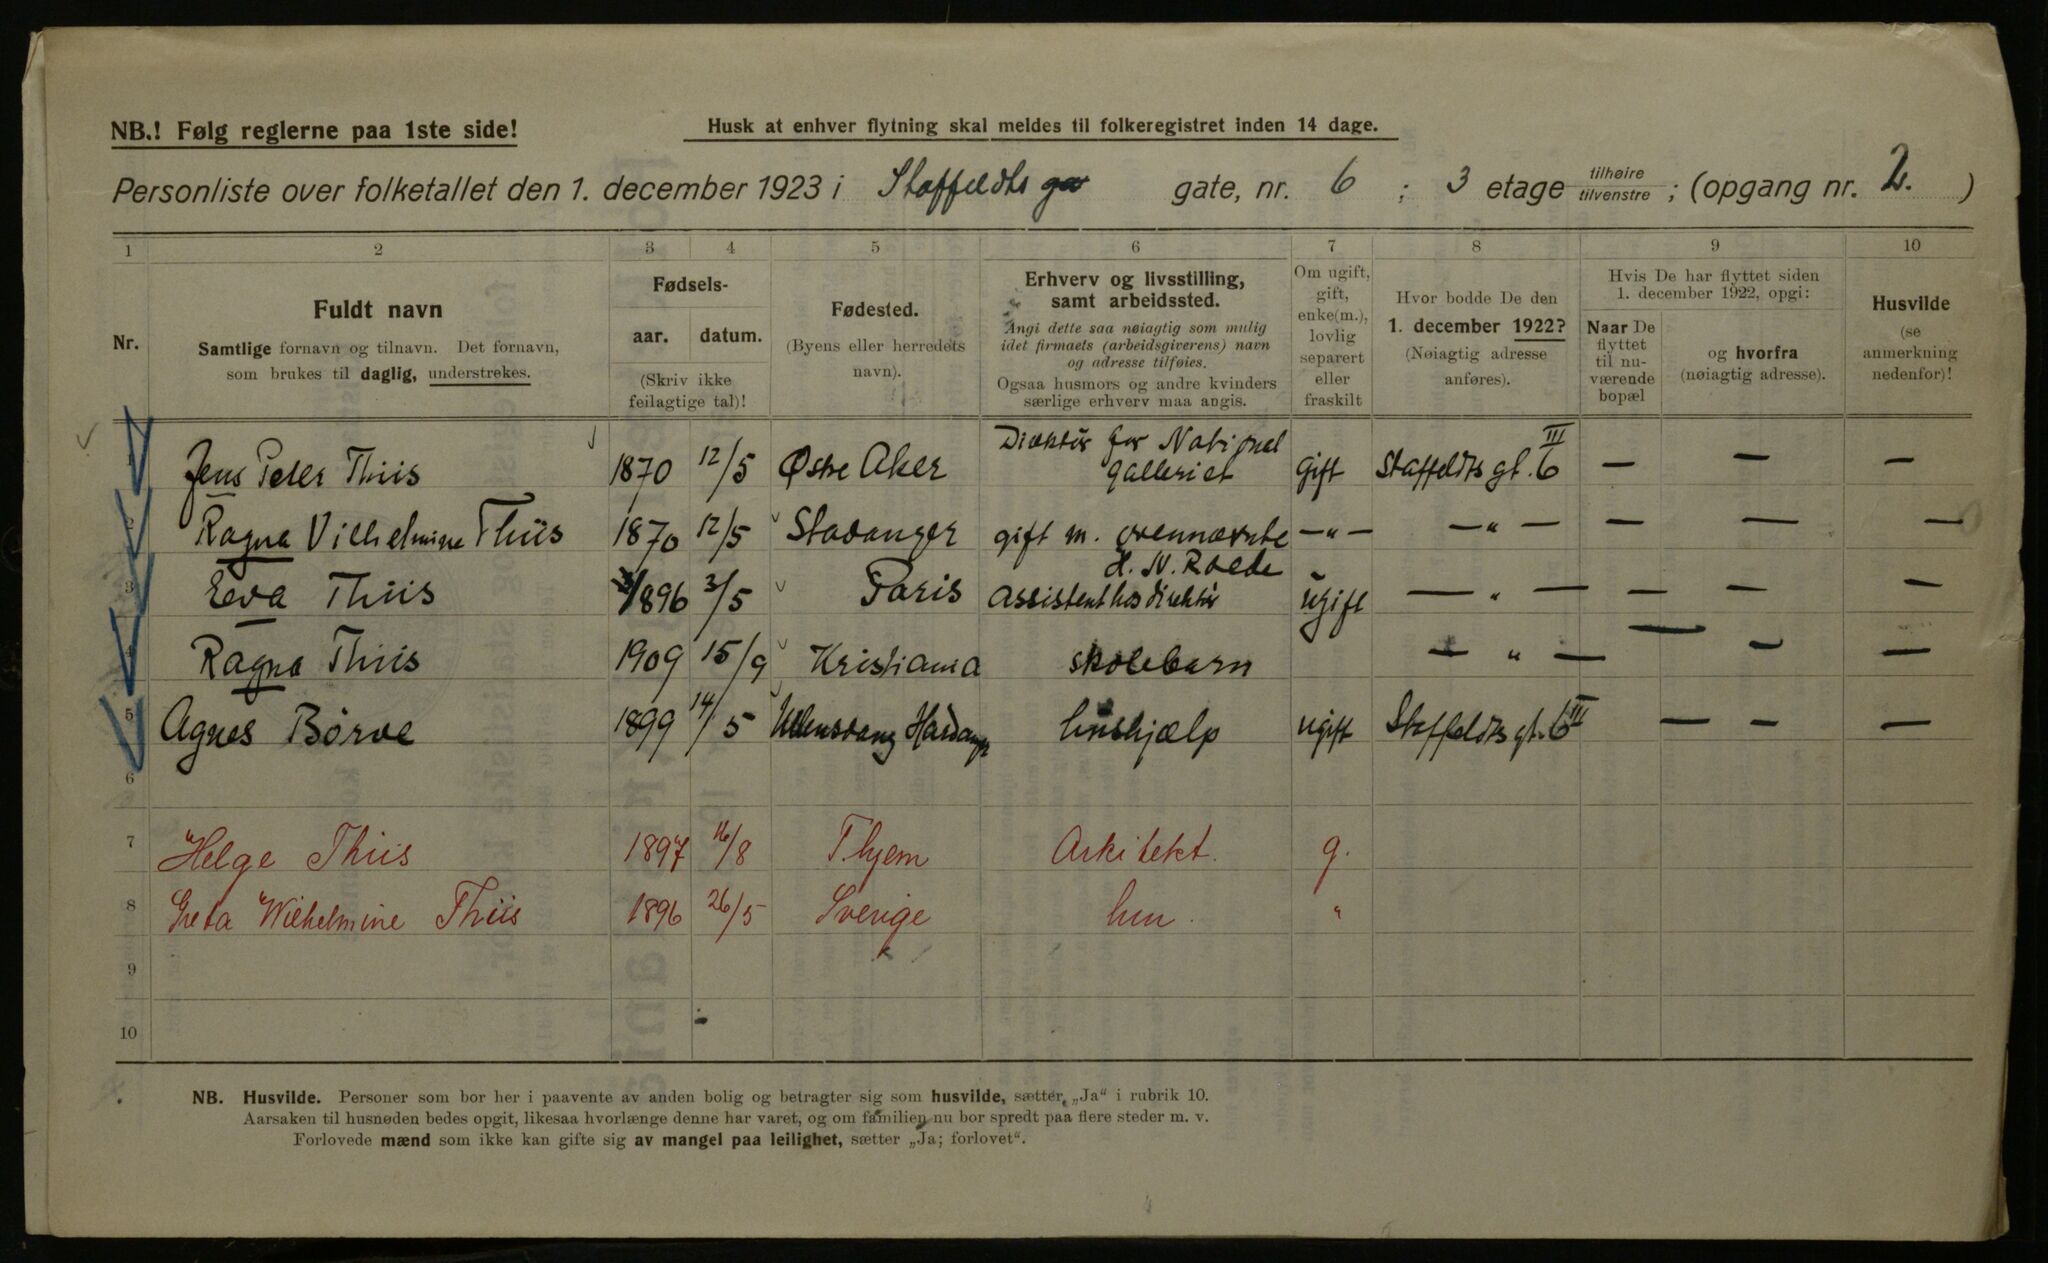 NB.! Følg reglerne paa 1ste side!
Husk at enhver flytning skal meldes til folkeregistret inden 14 dage.
Personliste over folketallet den 1. december 1923 i Staffeldts ga gate, nr. 6 ; 3 etage tilhøire tilvenstre ; (opgang nr. 2. )
1 2 3 4 5 6 7 8 9 10
Nr.
Fuldt navn
Samtlige fornavn og tilnavn. Det fornavn,
som brukes til daglig, understrekes.
Fødsels-
aar. datum.
(Skriv ikke
feilagtige tal)!
Fødested.
(Byens eller herredets
navn).
Erhverv og livsstilling,
samt arbeidssted.
Angi dette saa nøiagtig som mulig
idet firmaets (arbeidsgiverens) navn
og adresse tilføies.
Ogsaa husmors og andre kvinders
særlige erhverv maa angis.
Om ugift,
gift,
enke(m.),
lovlig
separert
eller
fraskilt
Hvor bodde De den
1. december 1922?
(Nøiagtig adresse
anføres).
Hvis De har flyttet siden
1. december 1922, opgi:
Naar De
flyttet
til nu-
værende
bopæl
og hvorfra
(nøiagtig adresse).
Husvilde
(se
anmerkning
nedenfor)!
1 Jens Peter Thiis 1870 12/5 Østre Aker Direktör for National galleriet gift Staffeldts gt. 6 III — — —
2 Ragna Vilhelmine Thiis 1870 12/5 Stavanger gift m. ovennævnte —"— —"— — — —
3 Eva Thiis 1896 3/5 Paris assistent hos direktör H. N. Roede ugift —"— — — —
4 Ragna Thiis 1909 15/9 Kristiania skolebarn —"— — — —
5 Agnes Börve 1899 14/5 Ullensvang Hardanger hushjælp ugift Staffeldts gt. 6 III — — —
6
7 Helge Thiis 1897 16/8 Thjem Arkitekt. g.
8 Greta Wilhelmine Thiis 1896 26/5 Sverige hm. "
9
10
NB. Husvilde. Personer som bor her i paavente av anden bolig og betragter sig som husvilde, sætter „Ja“ i rubrik 10.
Aarsaken til husnøden bedes opgit, likesaa hvorlænge denne har varet, og om familien nu bor spredt paa flere steder m. v.
Forlovede mænd som ikke kan gifte sig av mangel paa leilighet, sætter „Ja; forlovet“.